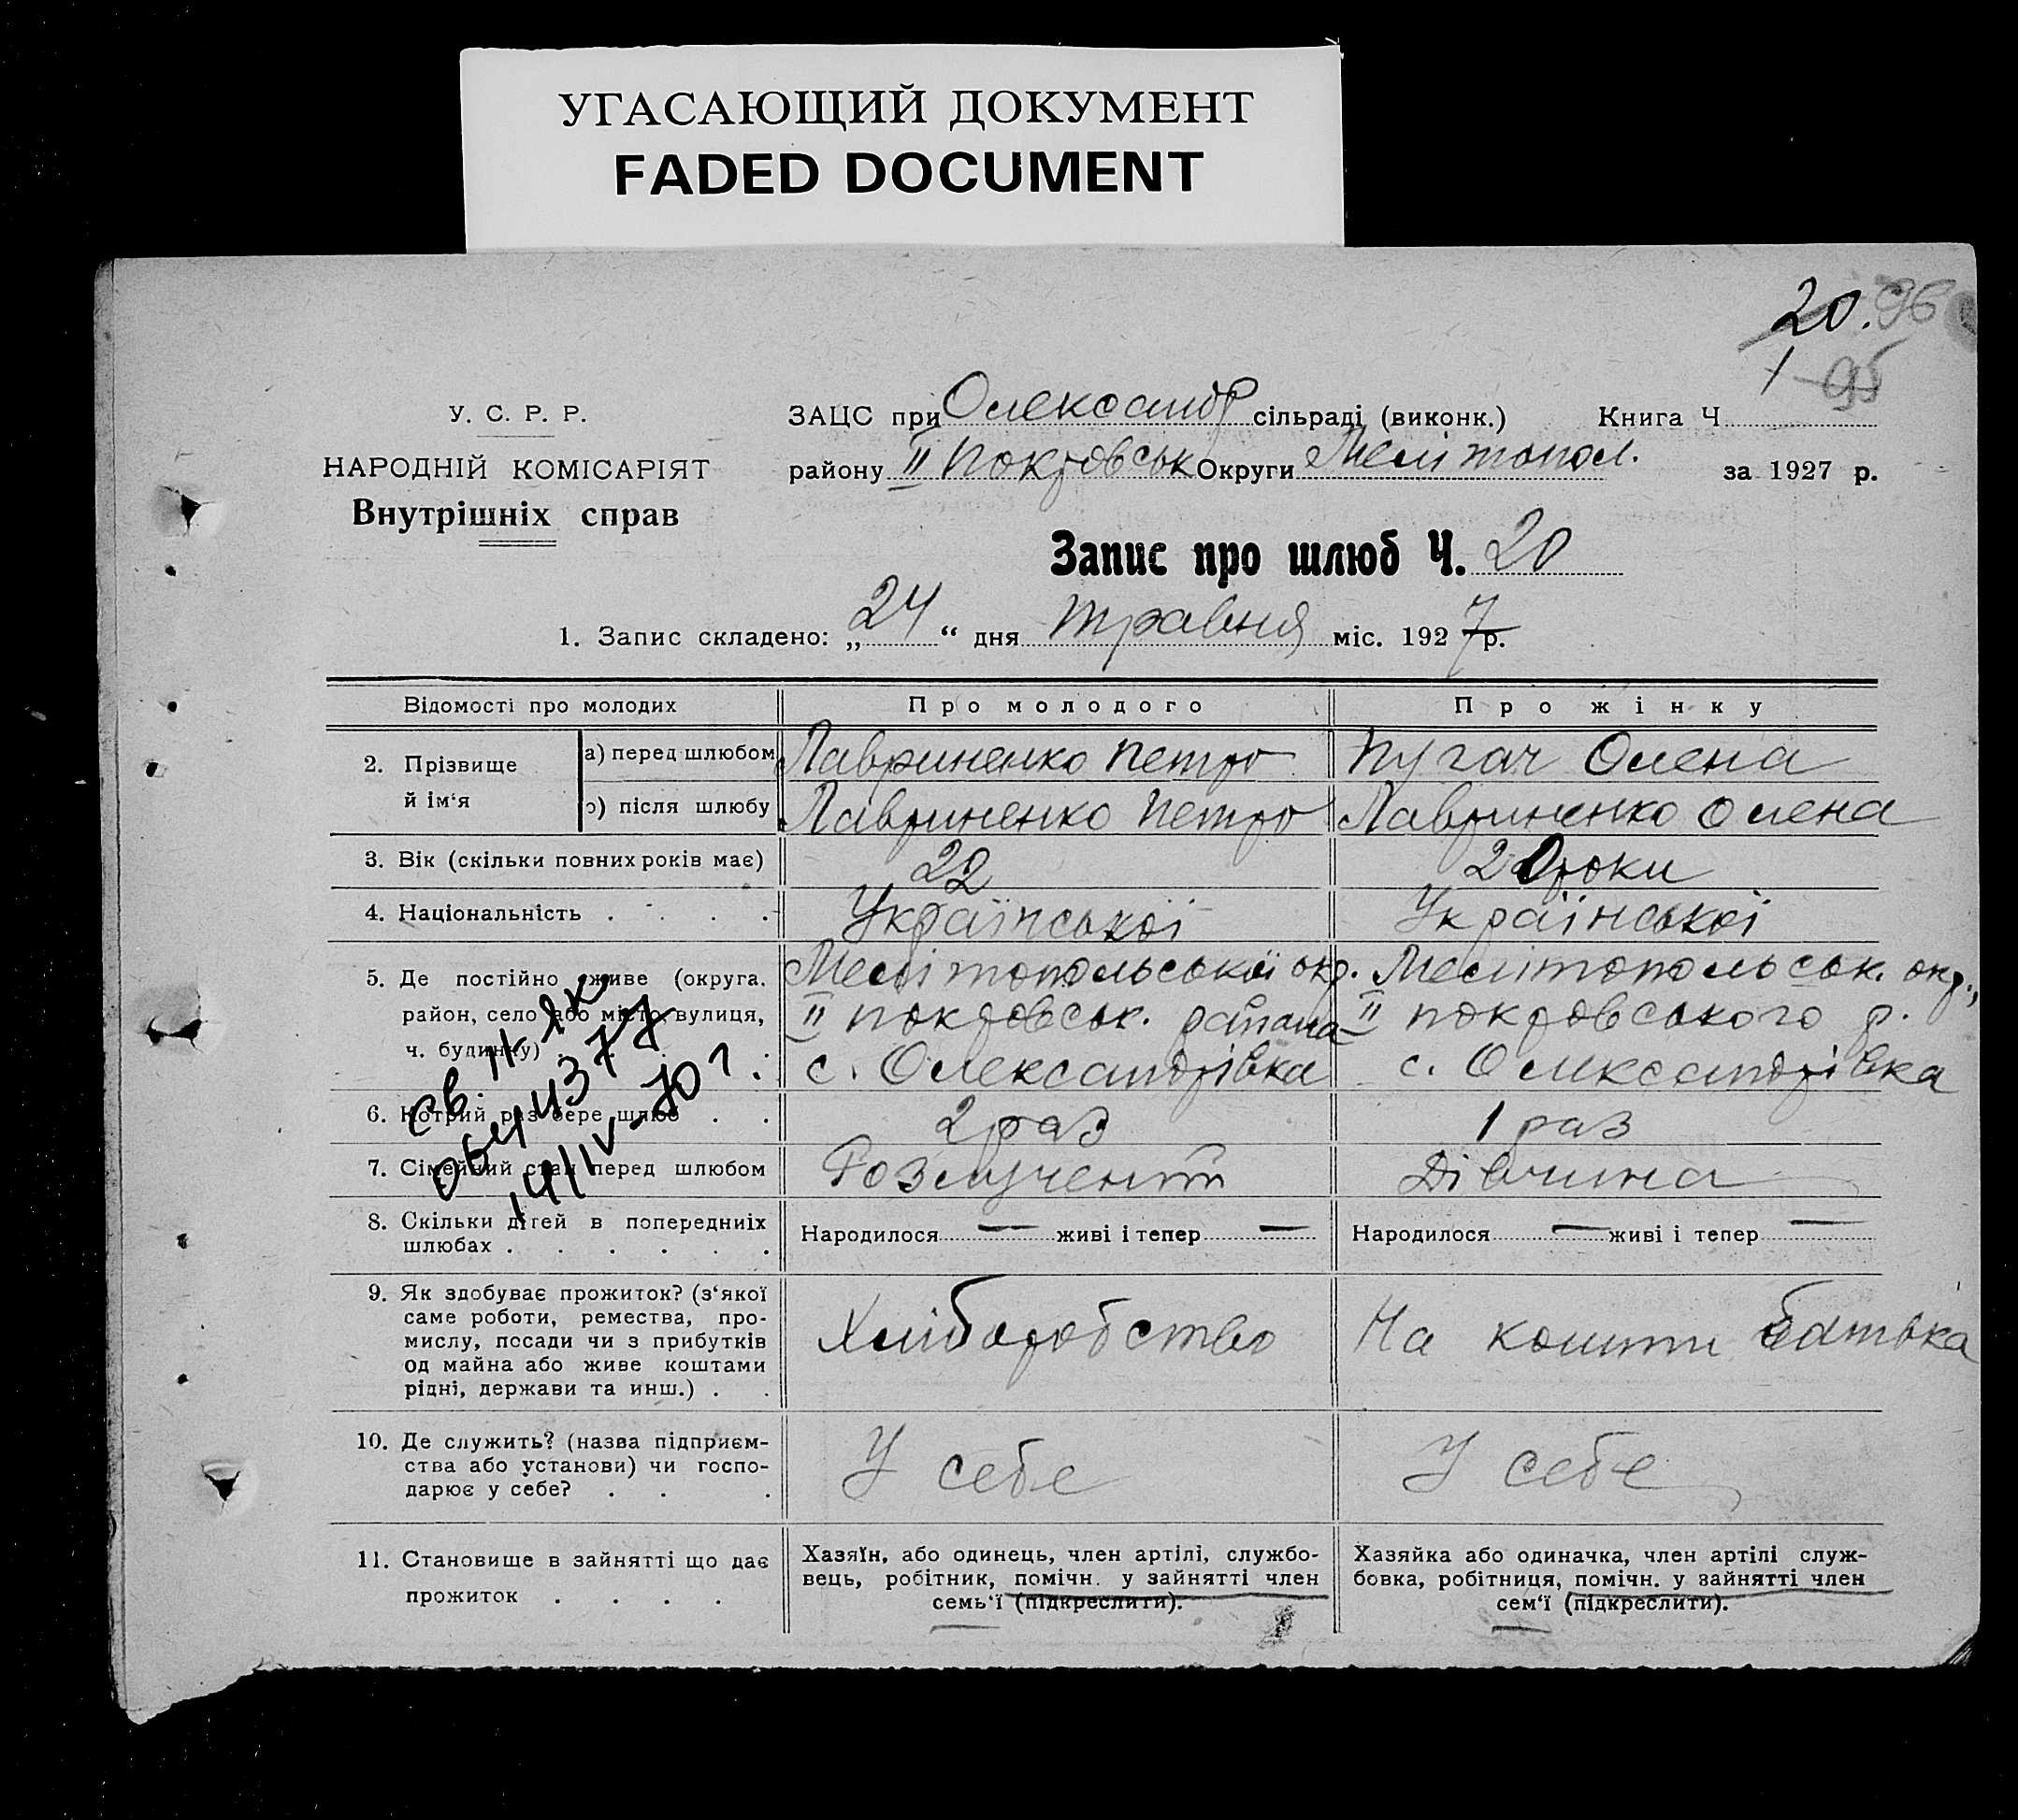 УГАСАЮЩИЙ ДОКУМЕНТ
FADED DOCUMENT
20. 96
1 95
У. С. Р. Р.
НАРОДНІЙ КОМІСАРІЯТ
Внутрішніх справ
ЗАЦС при Олександр сільраді (виконк.) Книга Ч
району II Покровськ Округи Мелітопол. за 1927 р.
Запис про шлюб Ч. 20
1. Запис складено: „24“ дня травня міс. 1927 р.
Відомості про молодих Про молодого Про жінку
2. Прізвище й ім'я
а) перед шлюбом Лавриненко Петро Пугач Олена
б) після шлюбу Лавриненко Петро Лавриненко Олена
3. Вік (скільки повних років має) 22 20 роки
4. Національність . . . . Української Української
5. Де постійно живе (округа, Мелітопольської окр. Мелітопольськ. окр.,
район, село або місто, вулиця, II Покровськ. района II Покровського р.
ч. будинку) с. Олександрівка с. Олександрівка
6. Котрий раз бере шлюб . . 2 раз 1 раз
7. Сімейний стан перед шлюбом Розлучений Дівчина
8. Скільки дітей в попередниіх Народилося — живі і тепер — Народилося — живі і тепер —
шлюбах . . . . . .
св. II ЯК
064377
14/IV-70 г.
9. Як здобуває прожиток? (з'якої
саме роботи, ремества, про-
мислу, посади чи з прибутків Хліборобство На кошти батька
од майна або живе коштами
рідні, держави та инш.) . .
10. Де служить? (назва підприєм-
ства або установи) чи госпо- У себе У себе
дарює у себе? . . .
11. Становише в зайнятті що дає
прожиток . . . .
Хазяїн, або одинець, член артілі, службо-
вець, робітник, помічн. у зайнятті член
семь'ї (підкреслити).
Хазяйка або одиначка, член артілі служ-
бовка, робітниця, помічн. у зайнятті член
сем'ї (підкреслити).